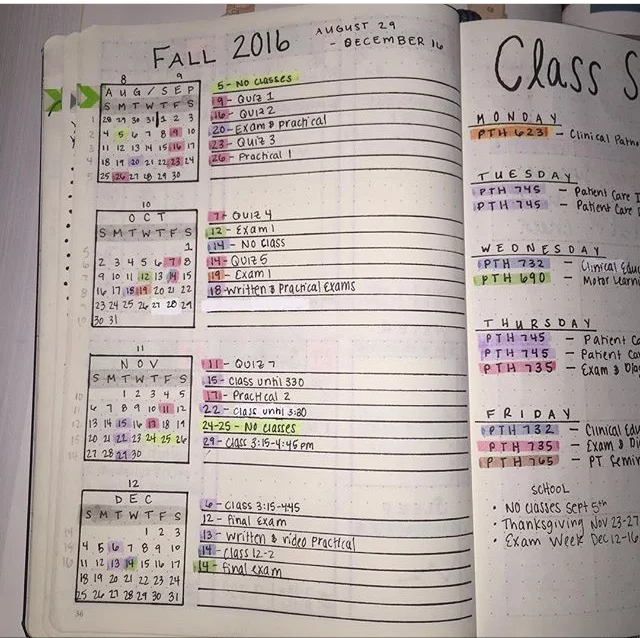 FALL 2016
AUGUST 29
- DECEMBER 16
8 9
AUG/SEP
S M T W T F S
1 28 29 30 31 1 2 3
2 4 5 6 7 8 9 10
3 11 12 13 14 15 16 17
4 18 19 20 21 22 23 24
5 25 26 27 28 29 30
5 - NO CLASSES
9 - QUIZ 1
16 - QUIZ 2
20 - Exam & practical
23 - QUIZ 3
26 - Practical 1
10
OCT
S M T W T F S
1
2 3 4 5 6 7 8
9 10 11 12 13 14 15
16 17 18 19 20 21 22
23 24 25 26 27 28 29
30 31
7 - QUIZ 4
12 - Exam 1
14 - NO Class
14 - QUIZ 5
19 - Exam 1
18 - Written & Practical Exams
11
NOV
S M T W T F S
1 2 3 4 5
6 7 8 9 10 11 12
13 14 15 16 17 18 19
20 21 22 23 24 25 26
27 28 29 30
11 - QUIZ 7
15 - Class until 330
17 - Practical 2
22 - Class until 3:30
24-25 - NO Classes
29 - Class 3:15-4:45pm
12
DEC
S M T W T F S
1 2 3
4 5 6 7 8 9 10
11 12 13 14 15 16 17
18 19 20 21 22 23 24
25 26 27 28 29 30 31
6 - Class 3:15-445
12 - Final Exam
13 - Written & video practical
14 - Class 12-2
14 - Final exam
36
Class S
MONDAY
PTH 623 - Clinical Patho
TUESDAY
PTH 745 - Patient Care I
PTH 745 - Patient Care
WEDNESDAY
PTH 732 - Clinical Educ
PTH 690 - Motor Learni
THURSDAY
PTH 745 - Patient Ca
PTH 745 - Patient Ca
PTH 735 - Exam & Dia
FRIDAY
PTH 732 - Clinical Edu
PTH 735 - Exam & Di
PTH 765 - PT Semin
SCHOOL
• NO Classes Sept 5th
• Thanksgiving Nov 23-27
• Exam Week Dec 12-16